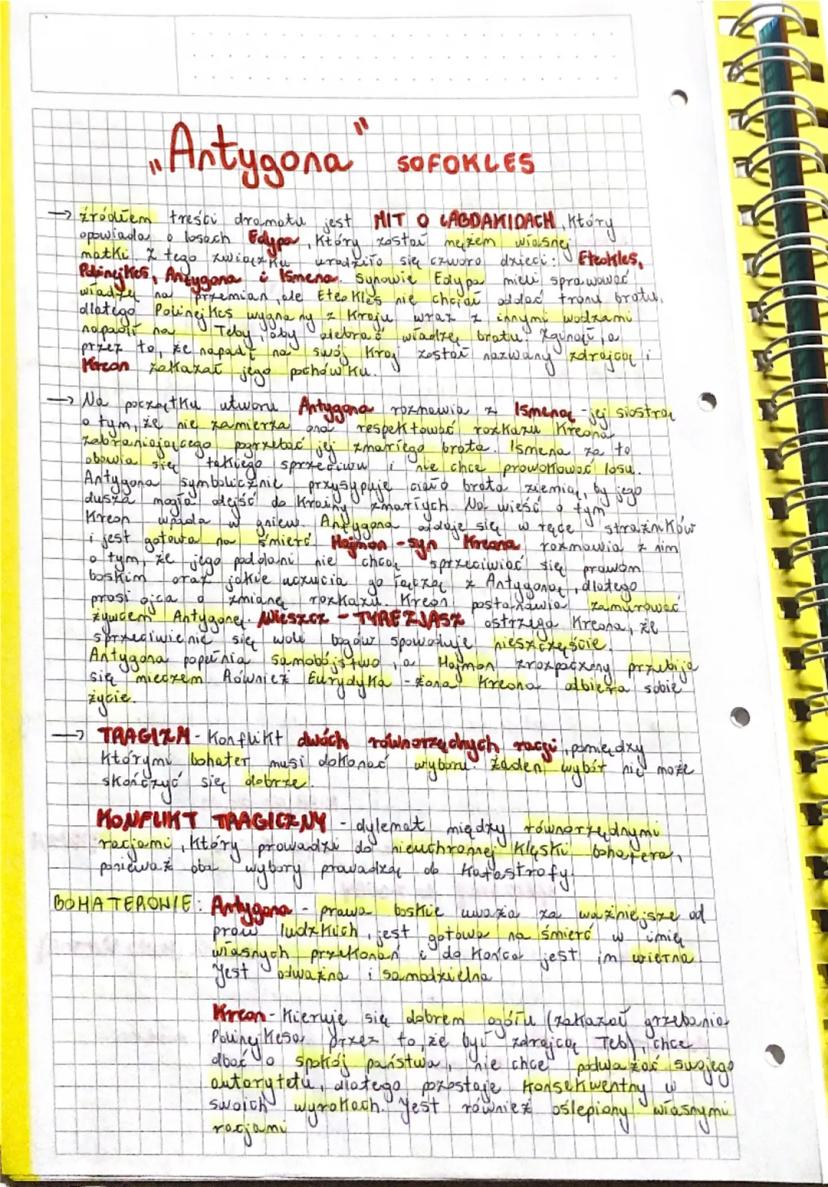 „Antygona” SOFOKLES
→ źródłem treści dramatu jest MIT O LABDAKIDACH, który
opowiada o losach Edypa, który został mężem własnej
matki. Z tego związku urodziło się czworo dzieci: Eteokles,
Polinejkes, Antygona i Ismena. Synowie Edypa mieli sprawować
władzę na przemian, ale Eteokles nie chciał oddać tronu bratu,
dlatego Polinejkes wygnany z kraju wraz z innymi wodzami
napadł na Teby, aby odebrać władzę bratu. Zginął, a
przez to, że napadł na swój kraj został nazwany zdrajcą i
Kreon zakazał jego pochówku.
→ Na początku utworu Antygona rozmawia z Ismeną - jej siostrą
o tym, że nie zamierza ona respektować rozkazu Kreona
zabraniającego pogrzebać jej zmarłego brata. Ismena za to
obawia się takiego sprzeciwu i nie chce prowokować losu.
Antygona symbolicznie przysypuje ciało brata ziemią, by jego
dusza mogła odejść do krainy zmarłych. Na wieść o tym
Kreon wpada w gniew. Antygona oddaje się w ręce strażników
i jest gotowa na śmierć. Hajmon - syn Kreona rozmawia z nim
o tym, że jego poddani nie chcą sprzeciwiać się prawom
boskim oraz jakie uczucia go łączą z Antygoną, dlatego
prosi ojca o zmianę rozkazu. Kreon postanawia zamurować
żywcem Antygonę. Wieszcz - TYREZJASZ ostrzega Kreona, że
sprzeciwienie się woli bogów spowoduje nieszczęście.
Antygona popełnia samobójstwo, a Hajmon zrozpaczony przebija
się mieczem. Również Eurydyka - żona Kreona odbiera sobie
życie.
→ TRAGIZM - konflikt dwóch równorzędnych racji, pomiędzy
którymi bohater musi dokonać wyboru. Żaden wybór nie może
skończyć się dobrze.
KONFLIKT TRAGICZNY - dylemat między równorzędnymi
racjami, który prowadzi do nieuchronnej klęski bohatera,
ponieważ oba wybory prowadzą do katastrofy.
BOHATEROWIE: Antygona - prawa boskie uważa za ważniejsze od
praw ludzkich, jest gotowa na śmierć w imię
własnych przekonań i do końca jest im wierna
Jest odważna i samodzielna
Kreon - kieruje się dobrem ogółu (zakazał grzebania
Polinejkesa przez to, że był zdrajcą Teb) chce
dbać o spokój państwa, nie chce podważać swojego
autorytetu, dlatego pozostaje konsekwentny w
swoich wyrokach. Jest również oślepiony własnymi
racjami